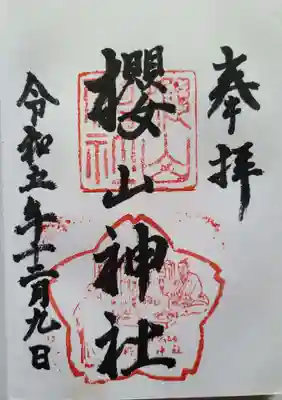 奉拝
櫻山神社
令和五年十二月九日